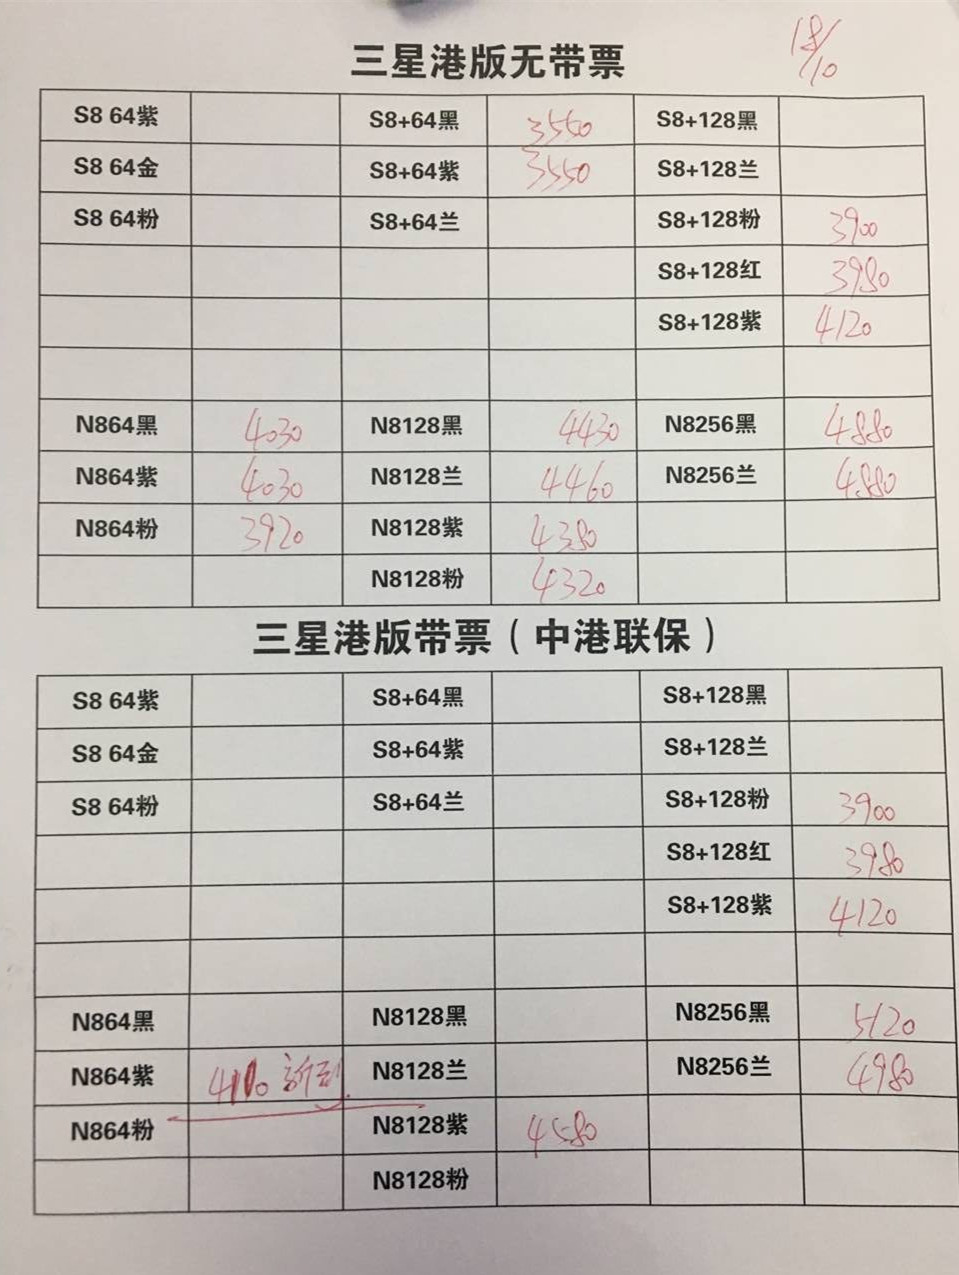 18/10
三星港版无带票
S8 64紫 S8+64黑 3550 S8+128黑
S8 64金 S8+64紫 3550 S8+128兰
S8 64粉 S8+64兰 S8+128粉 3900
S8+128红 3980
S8+128紫 4120
N864黑 4030 N8128黑 4430 N8256黑 4880
N864紫 4030 N8128兰 4460 N8256兰 4880
N864粉 3920 N8128紫 4380
N8128粉 4320
三星港版带票（中港联保）
S8 64紫 S8+64黑 S8+128黑
S8 64金 S8+64紫 S8+128兰
S8 64粉 S8+64兰 S8+128粉 3900
S8+128红 3980
S8+128紫 4120
N864黑 N8128黑 N8256黑 5120
N864紫 N8128兰 N8256兰 4980
N864粉 N8128紫 4580
N8128粉